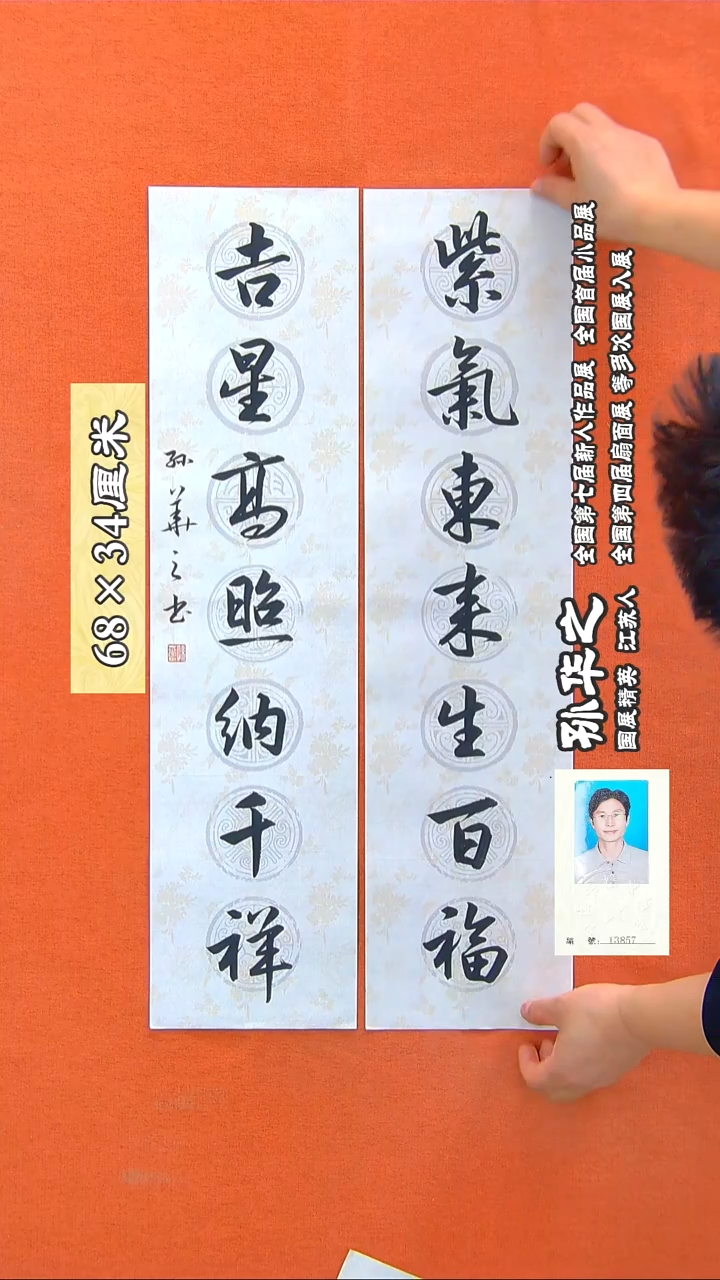 紫氣東来生百福
吉星高照纳千祥
孙華之书
68×34厘米
孙华之
国展精英 江苏人
全国第七届新人作品展 全国首届小品展
全国第四届扇面展 等多次国展入展
編 號: 13857